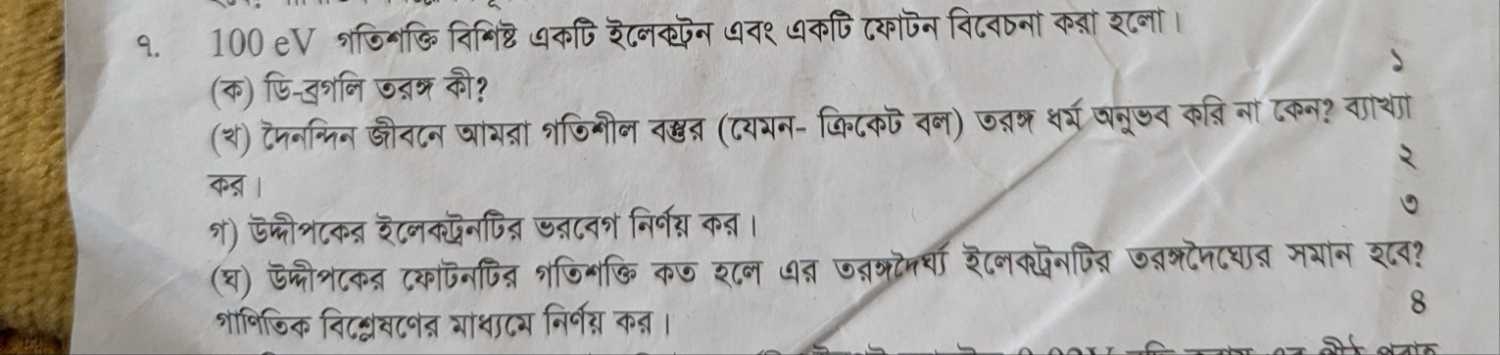 ৭. 100 eV গতিশক্তি বিশিষ্ট একটি ইলেকট্রন এবং একটি ফোটন বিবেচনা করা হলো।
(ক) ডি-ব্রগলি তরঙ্গ কী? ১
(খ) দৈনন্দিন জীবনে আমরা গতিশীল বস্তুর (যেমন- ক্রিকেট বল) তরঙ্গ ধর্ম অনুভব করি না কেন? ব্যাখ্যা
কর। ২
গ) উদ্দীপকের ইলেকট্রনটির ভরবেগ নির্ণয় কর। ৩
(ঘ) উদ্দীপকের ফোটনটির গতিশক্তি কত হলে এর তরঙ্গদৈর্ঘ্য ইলেকট্রনটির তরঙ্গদৈঘ্যের সমান হবে?
গাণিতিক বিশ্লেষণের মাধ্যমে নির্ণয় কর। ৪